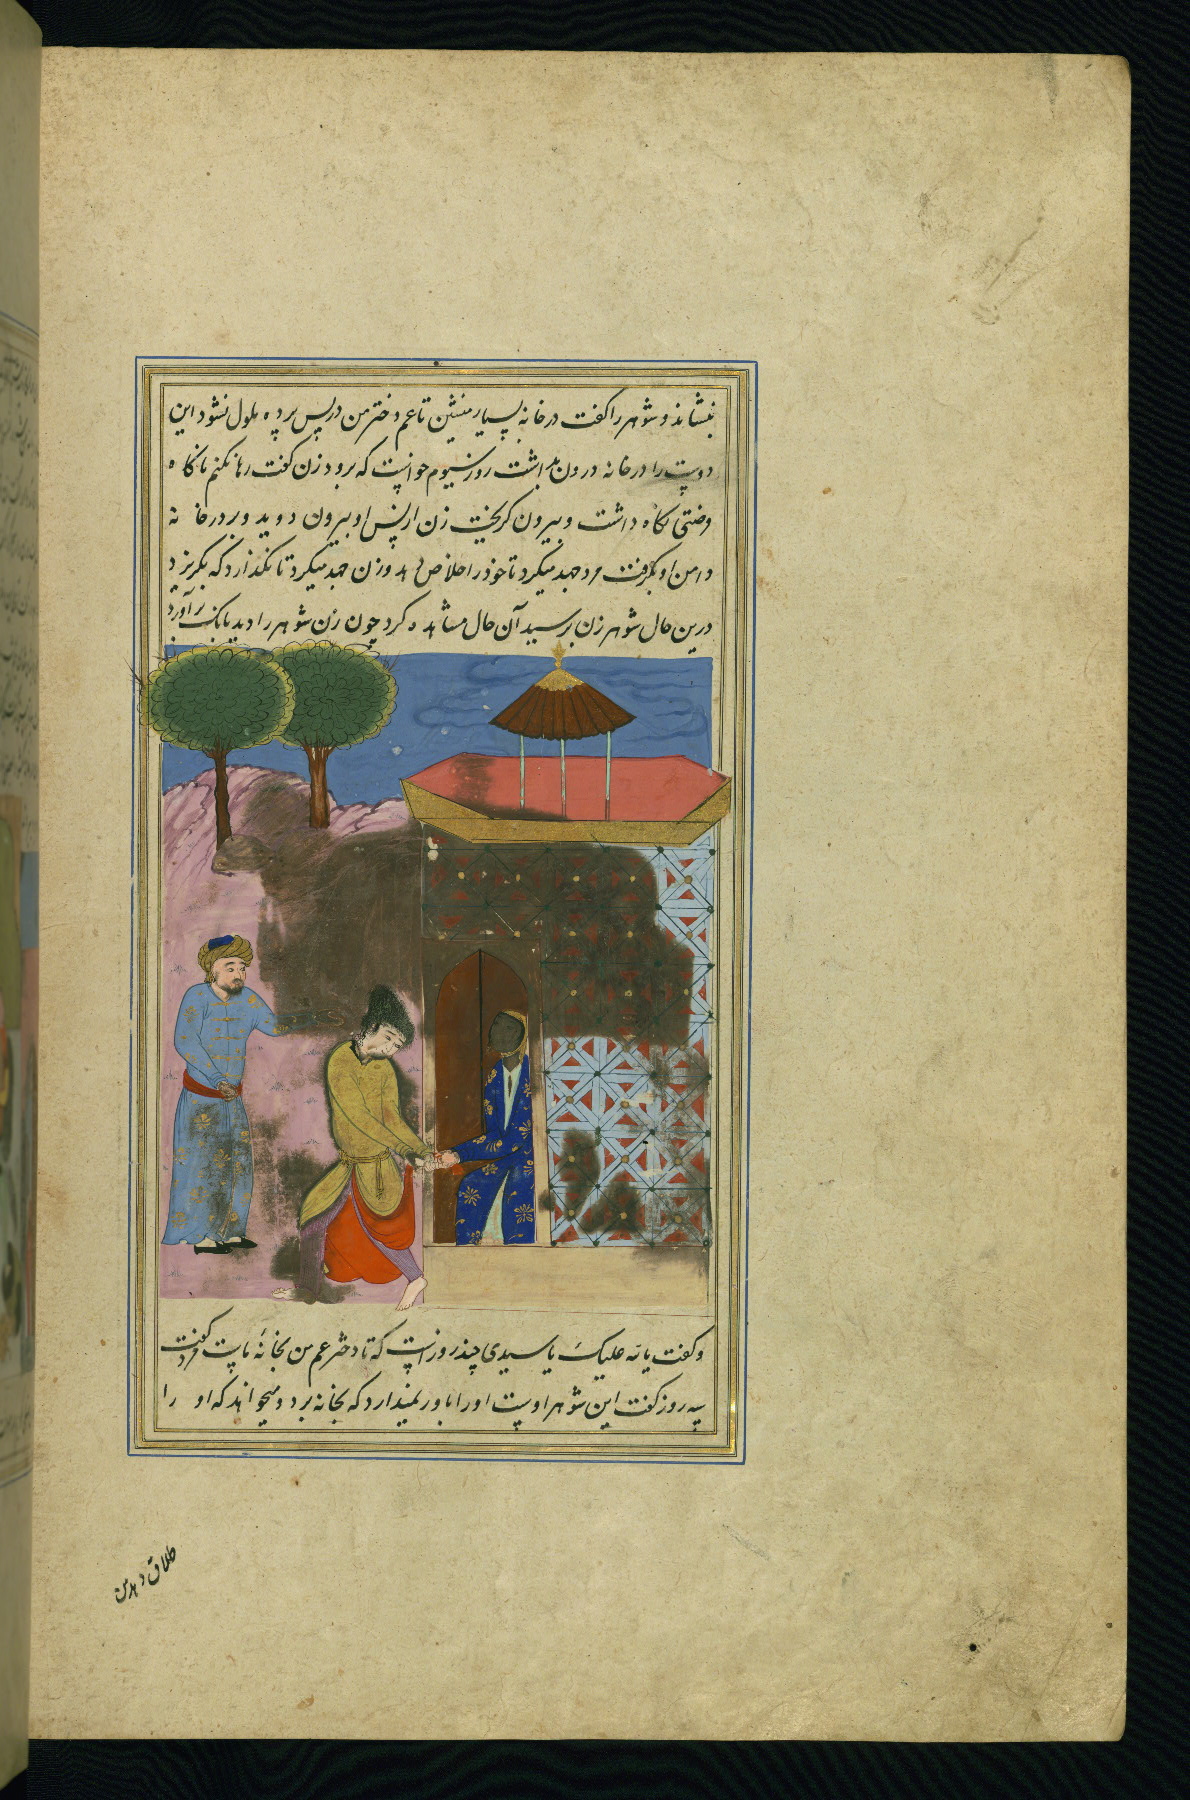 بنشاند و شوهر را گفت در خانه بسیار منشین تا عم دختر من در پس پرده ملول نشود این
دوست را در خانه درون بداشت روز سیوم خواست که برود زن گفت رها نکنم ناگاه
فرصتی نگاه داشت و بیرون گریخت زن از پس او بیرون دوید و بر در خانه
دامن او بگرفت مرد جهد میکرد تا خود را خلاص دهد و زن جهد میکرد تا نگذارد که بگریزد
درین حال شوهر زن برسید آن حال مشاهده کرد چون زن شوهر را دید بانک برآورد
و گفت بالله علیک یا سیدی چند روز است که تا دختر عم من بخانه ماست مرد گفت
سه روز گفت این شوهر اوست او را باور نمیدارد که بخانه برد و میخواهد که او را
طلاق دهد من